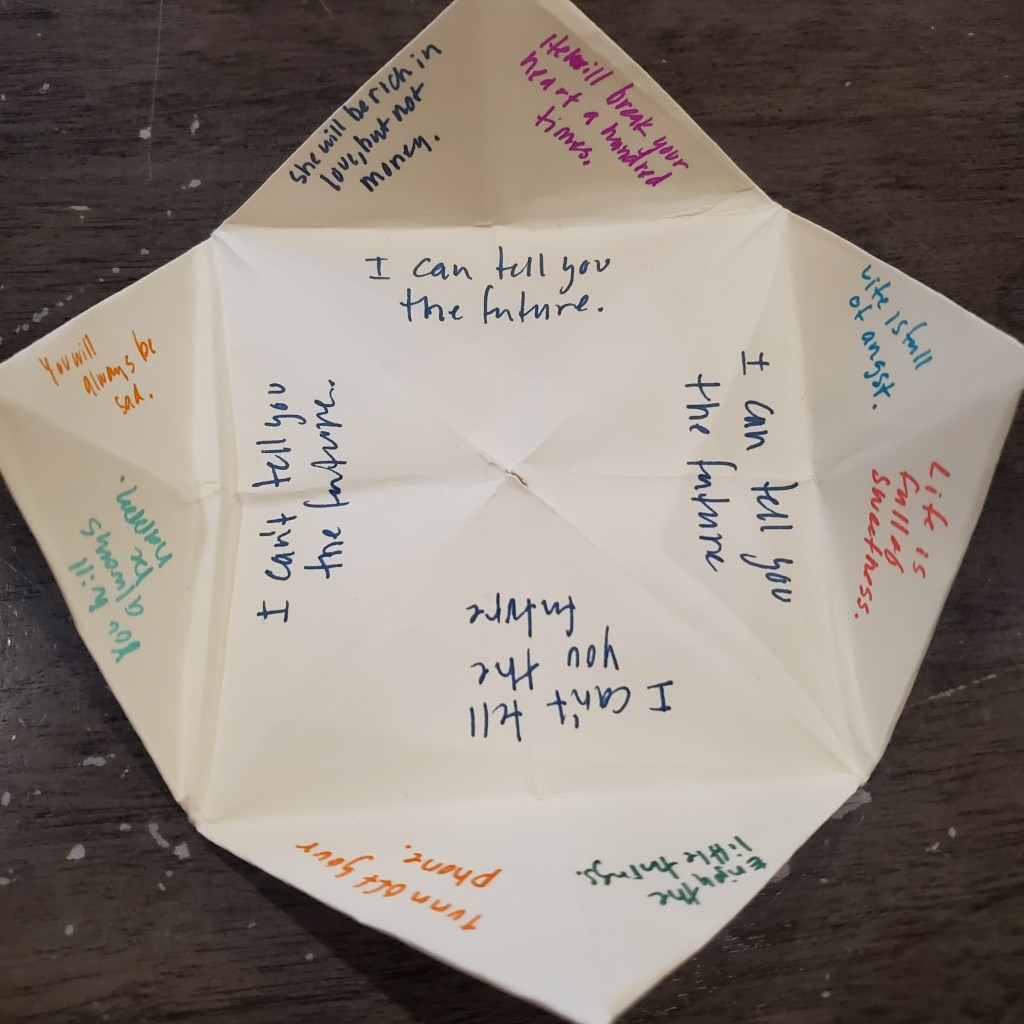 she will be rich in
love, but not
money.
He will break your
heart a hundred
times.
I can tell you
the future.
Life is full
of angst.
Life is
full of
sweetness.
I can tell you
the future
I can't tell
you the
future
I can't tell you
the future.
You will
always be
sad.
You will
always
be
happen.
Turn off your
phone.
Enjoy the
little things.